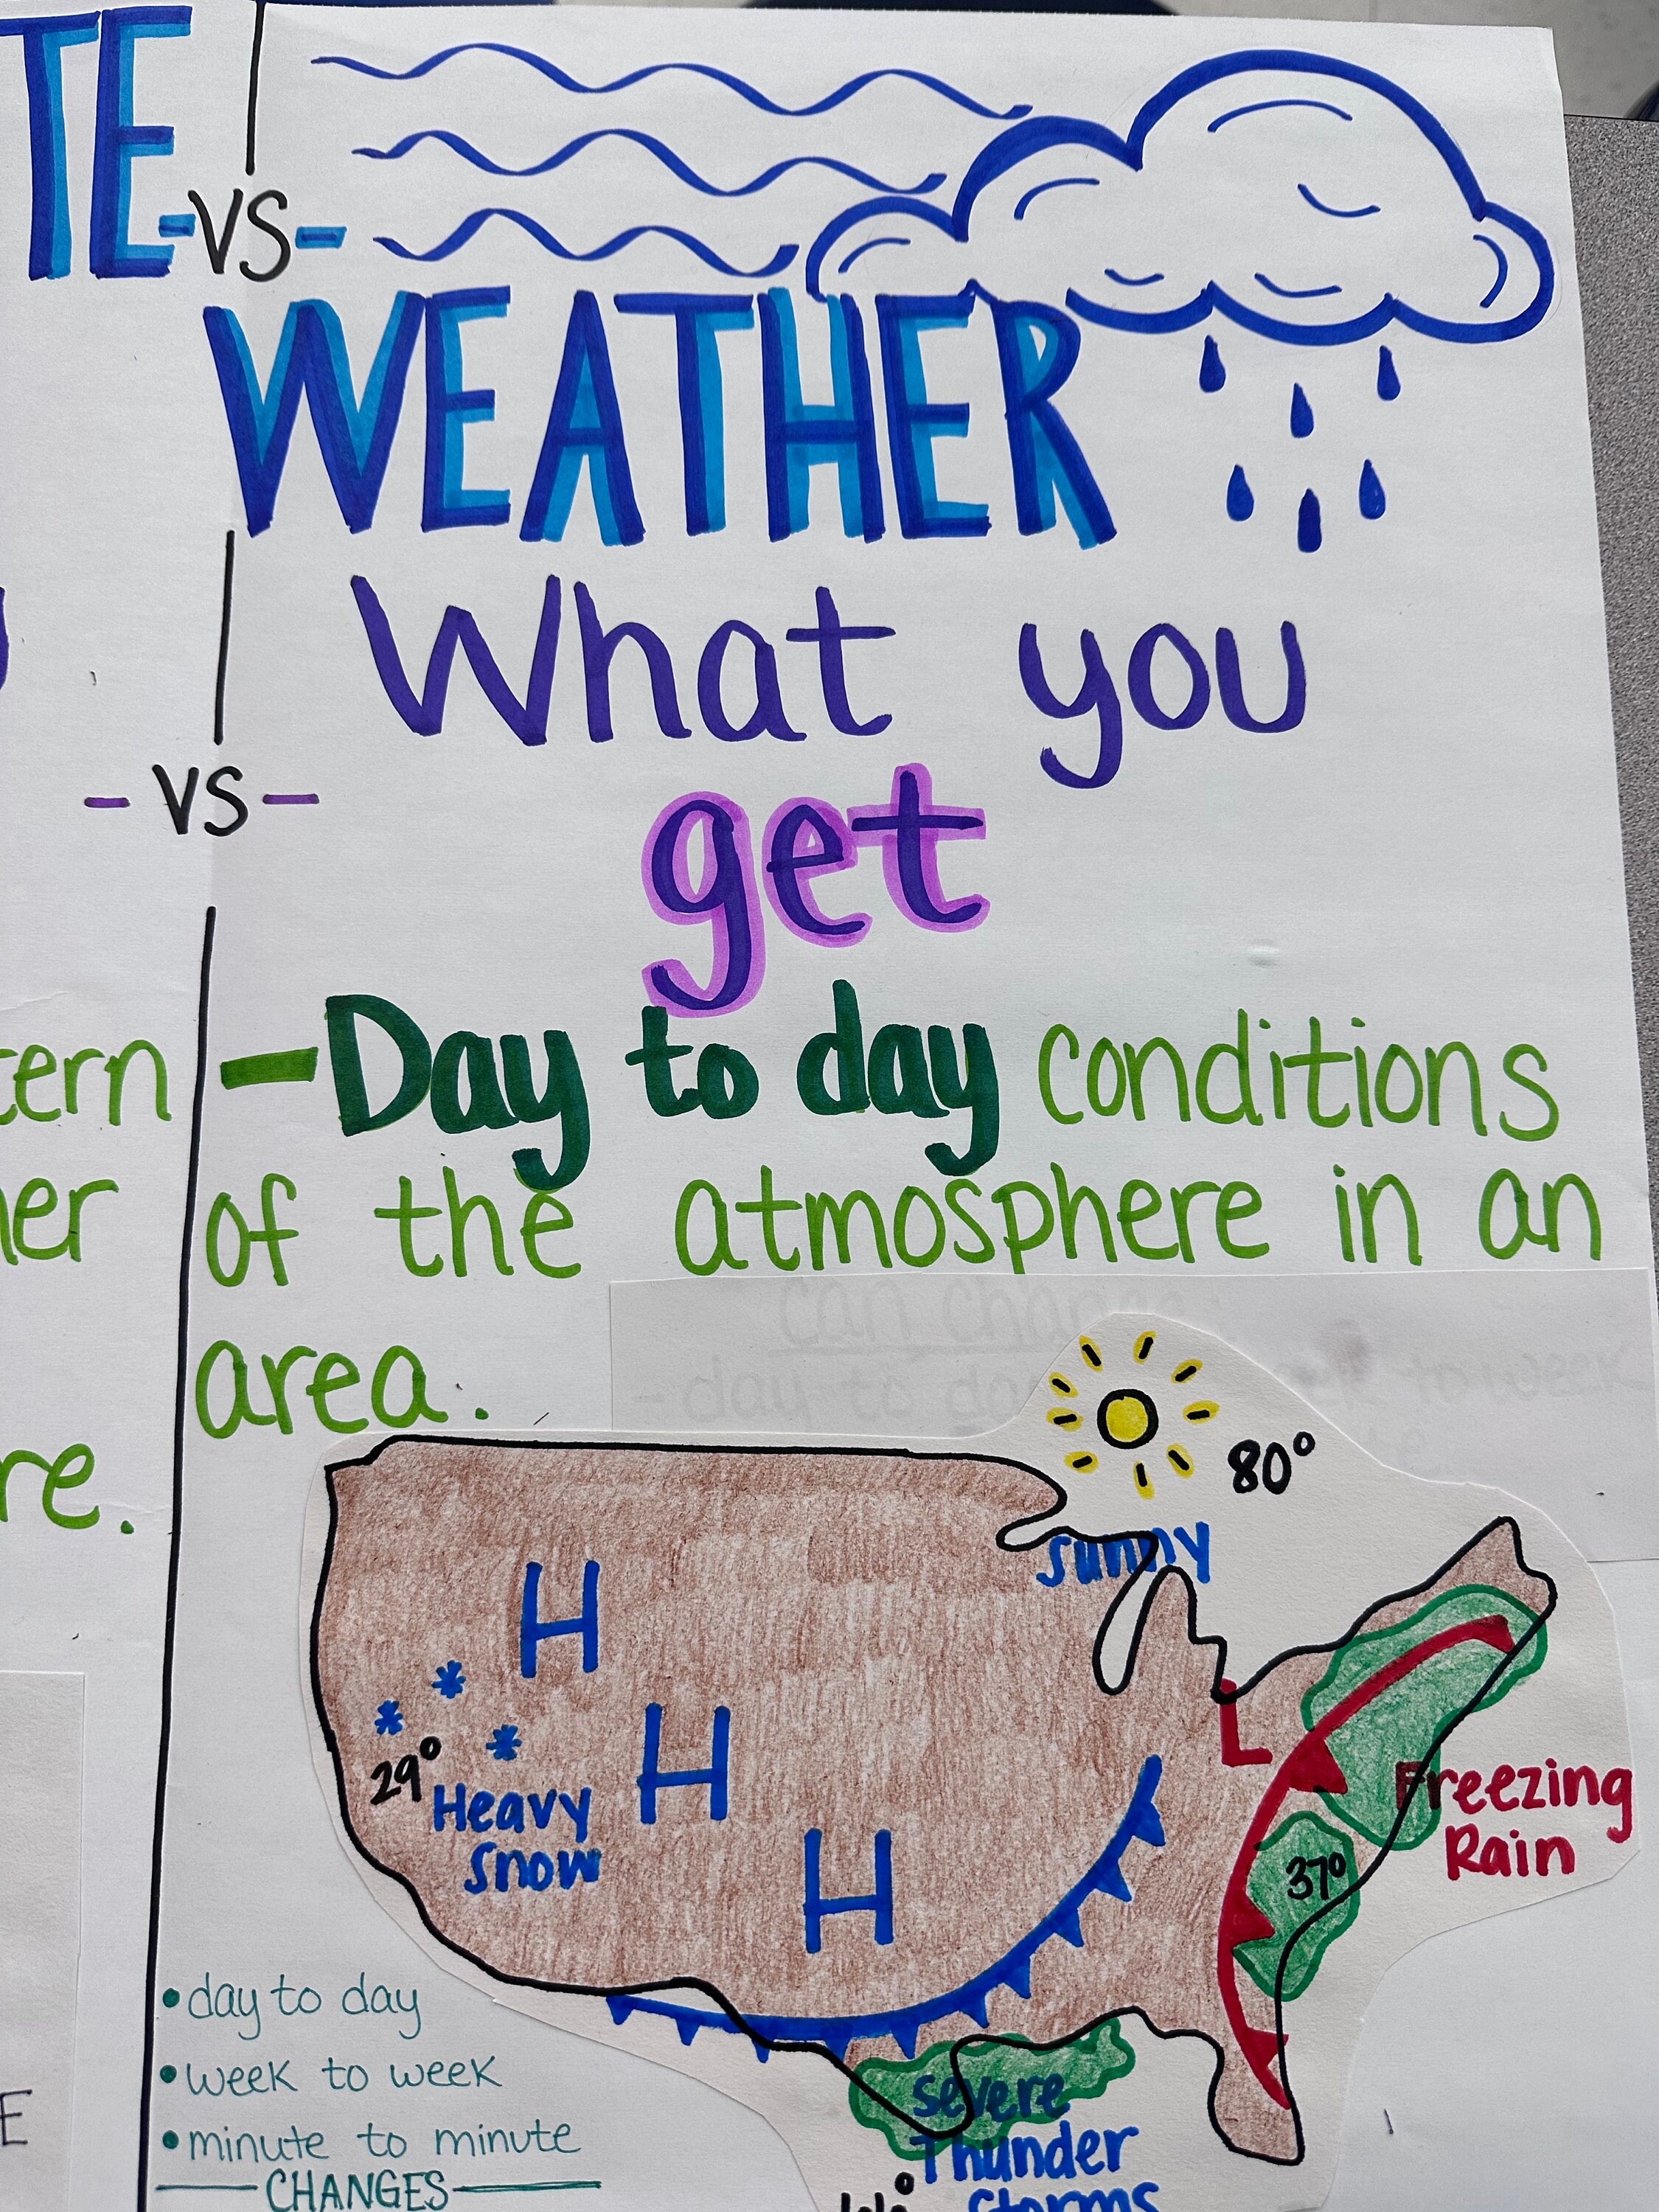 TE -VS-
WEATHER
What you
-VS-
get
tern
-Day to day conditions
her
of the atmosphere in an
can chan
-day to da
area.
re.
80°
sunny
H
H
H
L
29°
Heavy
Snow
Freezing
Rain
37°
• day to day
• week to week
• minute to minute
CHANGES
E
Severe
Thunder
Storms